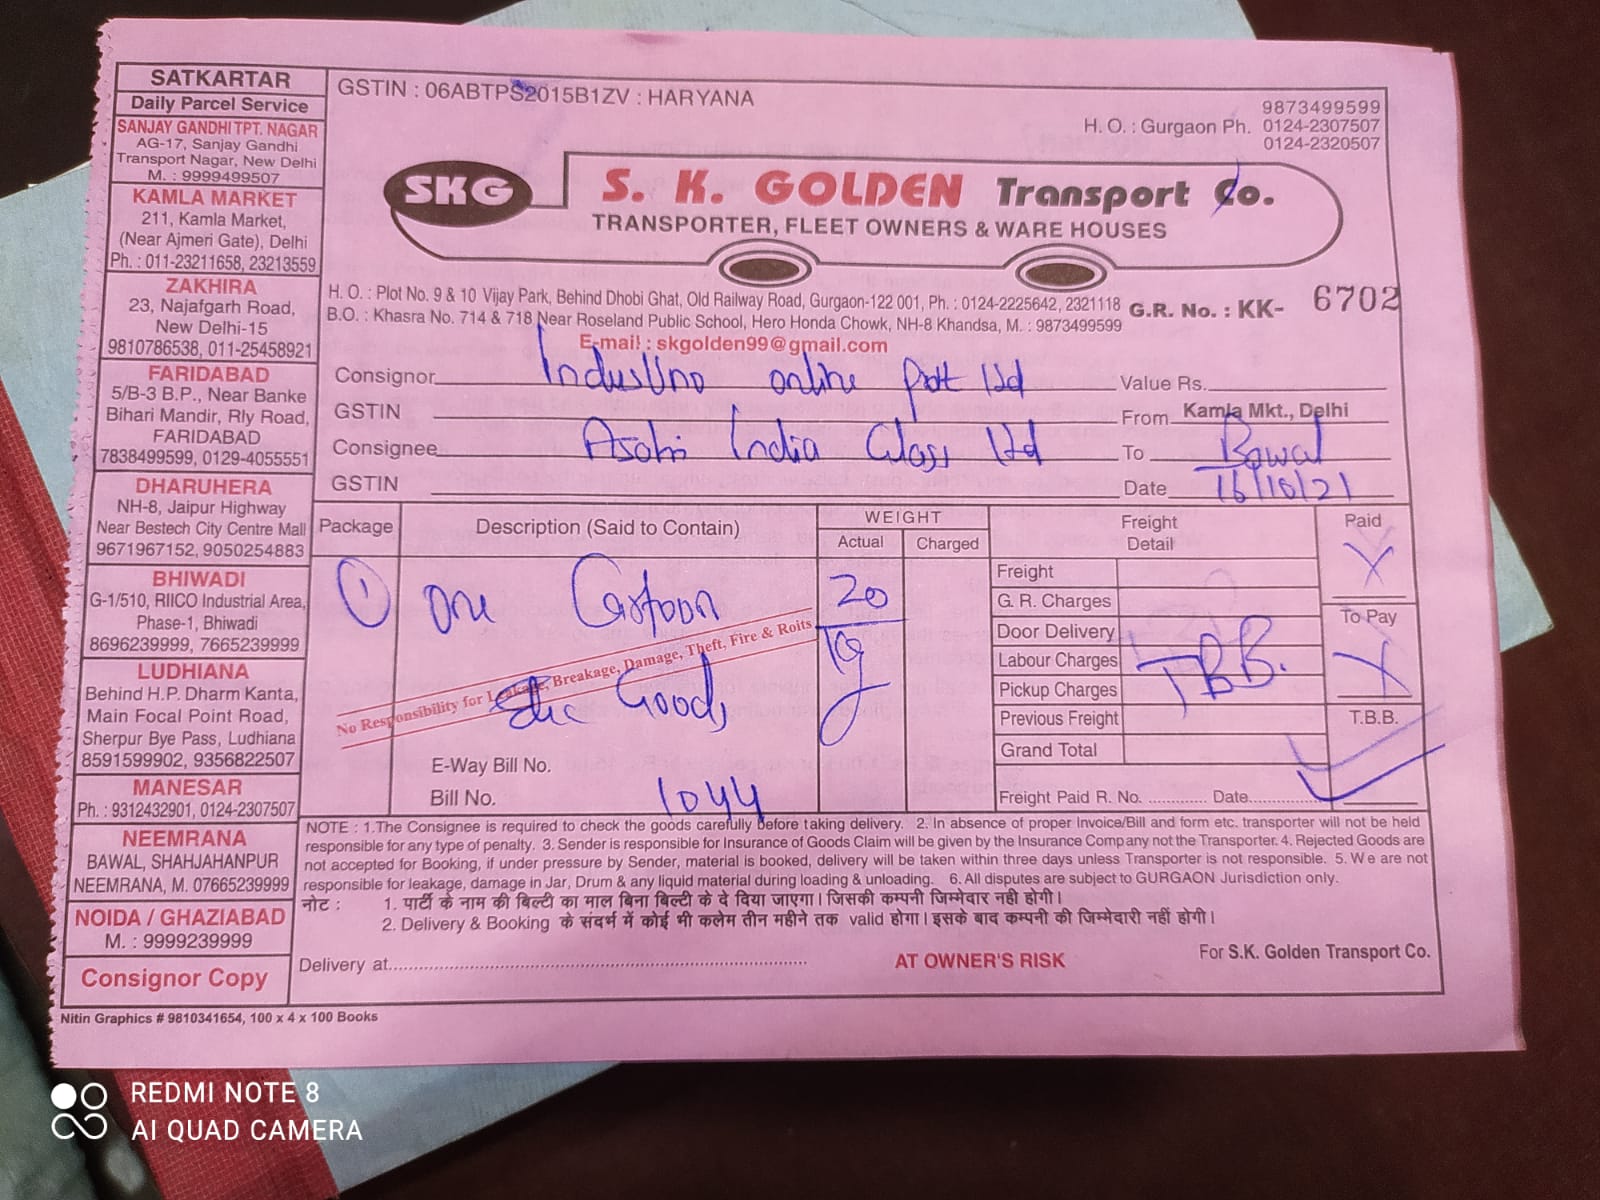 SATKARTAR
Daily Parcel Service
SANJAY GANDHI TPT. NAGAR
AG-17, Sanjay Gandhi
Transport Nagar, New Delhi
M. : 9999499507
KAMLA MARKET
211, Kamla Market,
(Near Ajmeri Gate), Delhi
Ph. : 011-23211658, 23213559
ZAKHIRA
23, Najafgarh Road,
New Delhi-15
9810786538, 011-25458921
FARIDABAD
5/B-3 B.P., Near Banke
Bihari Mandir, Rly Road,
FARIDABAD
7838499599, 0129-4055551
DHARUHERA
NH-8, Jaipur Highway
Near Bestech City Centre Mall
9671967152, 9050254883
BHIWADI
G-1/510, RIICO Industrial Area,
Phase-1, Bhiwadi
8696239999, 7665239999
LUDHIANA
Behind H.P. Dharm Kanta,
Main Focal Point Road,
Sherpur Bye Pass, Ludhiana
8591599902, 9356822507
MANESAR
Ph. : 9312432901, 0124-2307507
NEEMRANA
BAWAL, SHAHJAHANPUR
NEEMRANA, M. 07665239999
NOIDA / GHAZIABAD
M. : 9999239999
Consignor Copy
GSTIN : 06ABTPS2015B1ZV : HARYANA
9873499599
H. O. : Gurgaon Ph. 0124-2307507
0124-2320507
SKG S. K. GOLDEN Transport Co.
TRANSPORTER, FLEET OWNERS & WARE HOUSES
H. O. : Plot No. 9 & 10 Vijay Park, Behind Dhobi Ghat, Old Railway Road, Gurgaon-122 001, Ph. : 0124-2225642, 2321118
B.O. : Khasra No. 714 & 718 Near Roseland Public School, Hero Honda Chowk, NH-8 Khandsa, M. : 9873499599
G.R. No. : KK- 6702
E-mail : skgolden99@gmail.com
Consignor online Ltd Value Rs.
GSTIN From Kamla Mkt., Delhi
Consignee Asahi India Glass Ltd To Bawal
GSTIN Date 16/10/21
Package Description (Said to Contain) WEIGHT Actual Charged Freight Detail Paid
1 one Cartoon 20 Kg X
No Responsibility for Leakage, Breakage, Damage, Theft, Fire & Roits
Goods
Freight
G. R. Charges
Door Delivery
Labour Charges
Pickup Charges
Previous Freight
Grand Total
T.B.B.
To Pay
X
T.B.B.
E-Way Bill No.
Bill No. 1044
Freight Paid R. No. ............. Date....................
NOTE : 1.The Consignee is required to check the goods carefully before taking delivery. 2. In absence of proper Invoice/Bill and form etc. transporter will not be held
responsible for any type of penalty. 3. Sender is responsible for Insurance of Goods Claim will be given by the Insurance Company not the Transporter. 4. Rejected Goods are
not accepted for Booking, if under pressure by Sender, material is booked, delivery will be taken within three days unless Transporter is not responsible. 5. We are not
responsible for leakage, damage in Jar, Drum & any liquid material during loading & unloading. 6. All disputes are subject to GURGAON Jurisdiction only.
नोट : 1. पार्टी के नाम की बिल्टी का माल बिना बिल्टी के दे दिया जाएगा। जिसकी कम्पनी जिम्मेदार नही होगी।
2. Delivery & Booking के संदर्भ में कोई भी कलेम तीन महीने तक valid होगा। इसके बाद कम्पनी की जिम्मेदारी नहीं होगी।
Delivery at....................
AT OWNER'S RISK
For S.K. Golden Transport Co.
Nitin Graphics # 9810341654, 100 x 4 x 100 Books
REDMI NOTE 8
AI QUAD CAMERA